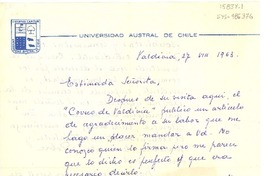 UNIVERSIDAD AUSTRAL DE CHILE
Valdivia, 27 VIII 1963.
Estimada Señorita,
Después de su visita aquí, el
"Correo de Valdivia" publicó un artículo
de agradecimiento a su labor que me
hago un placer mandar a Ud. No
conozco quien lo firma pero me parece
que lo dicho es perfecto y que era
necesario decirlo.